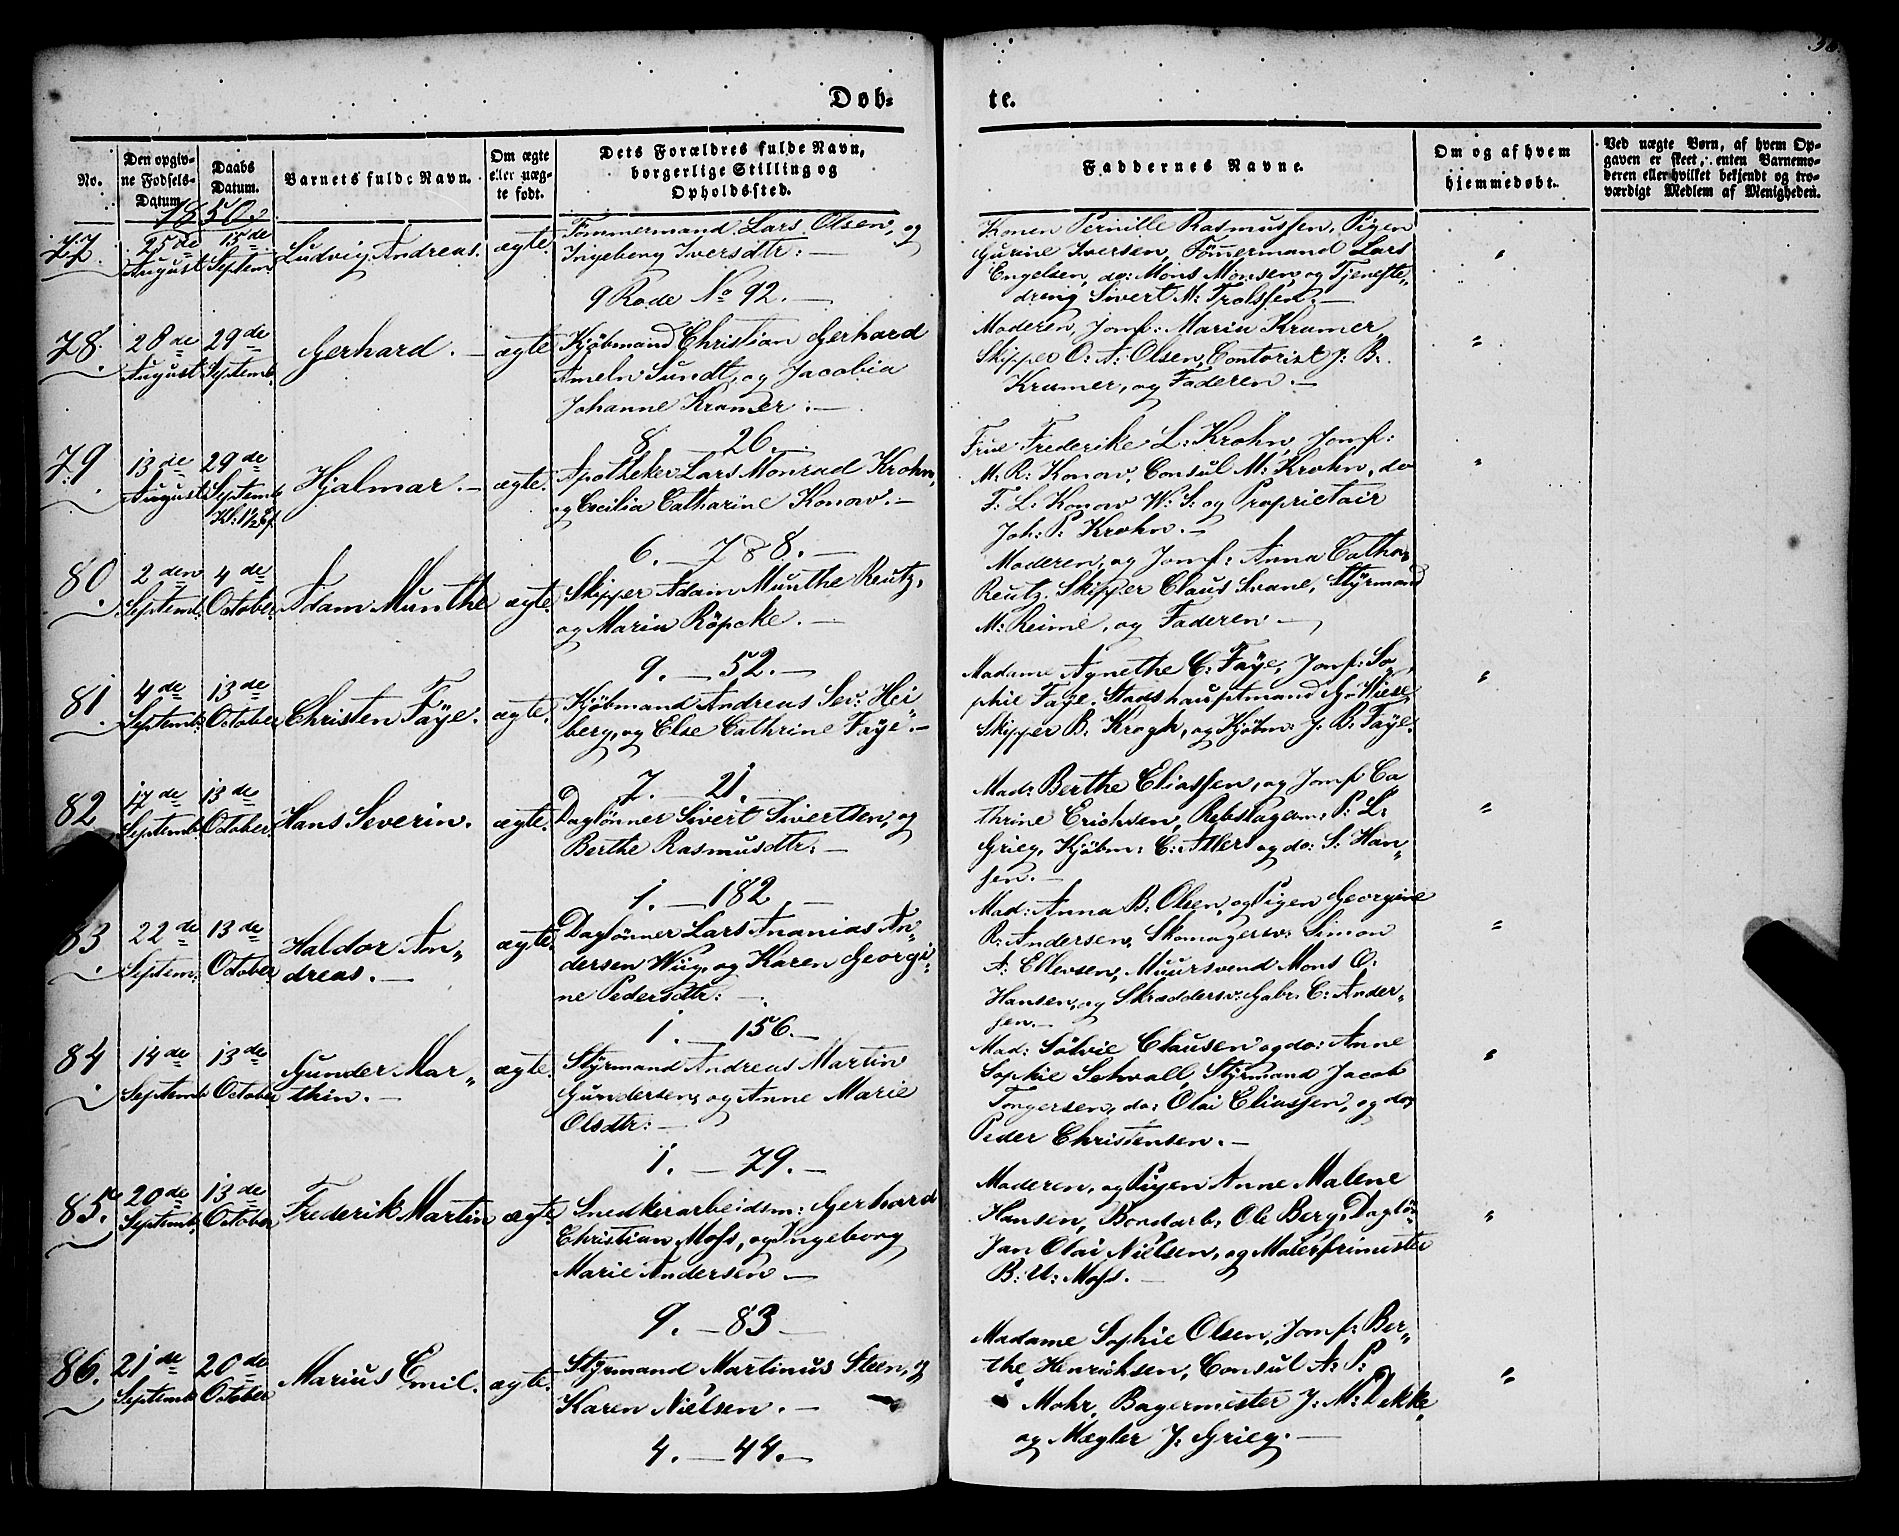 38.
Døb=
te.
No.
Den opgiv=
ne Fødsels=
Datum.
Daabs
Datum.
Barnets fulde Navn.
Om ægte
eller uæg=
te født.
Dets Forældres fulde Navn,
borgerlige Stilling og
Opholdssted.
Faddernes Navne.
Om og af hvem
hjemmedøbt.
Ved uægte Børn, af hvem Op=
gaven er skeet, enten Barnemo=
deren eller hvilket bekjendt og tro=
værdigt Medlem af Menigheden.
1850.
77.
25de
August
15de
Septem
Ludvig Andreas.
ægte.
Tømmermand Lars Olsen, og
Ingeborg Iversdtr: —
9 Rode No 92. —
Konen Pernille Rasmussen, Pigen
Gurine Iversen, Tömermand Lars
Engelsen, do: Mons Monsen, og Tjeneste„
dreng Sivert M: Trolssen. —
"
78.
28de
August
29de
Septemb.
Gerhard. —
ægte
Kjøbmand Christian Gerhard
Ameln Sundt, og Jacobia
Johanne Kramer: —
8. — 26. —
Moderen, Jomf: Maria Kramer,
Skipper O: A: Olsen, Contorist J: B:
Kramer, og Faderen. —
"
79.
13de
August
29de
Septemb
Kl: 1½ Ef.
Hjalmar. —
ægte.
Apotheker Lars Monrad Krohn,
og Cecilia Catharine Konow. —
6. — 788. —
Frue Frederike L: Krohn, Jomf:
M: R: Konow, Consul M: Krohn, do
F: L: Konow W: S: og Proprietair
Joh: P: Krohn. —
"
80.
2den
Septemb.
4de
October.
Adam Munthe
ægte.
Skipper Adam Munthe Reutz,
og Maria Röpcke. —
9. — 52. —
Moderen, og Jomf: Anna Catha„
Reutz. Skipper Claus Svane, Styrmand
M: Reime, og Faderen —
81.
4de
Septemb:
13de
October
Christen Faÿe.
ægte.
Kjøbmand Andreas Sev: Hei„
berg, og Else Cathrine Faÿe. —
7. — 21. —
Madame Agnethe C: Faÿe, Jomf: So„
phie Faÿe. Stadshauptmand G: Wiese,
Skipper B. Krogh, og Kjøbm: J: R: Faÿe.
"
82
17de
Septemb
13de
October.
Hans Severin.
ægte.
Daglönner Sivert Sivertsen, og
Berthe Rasmusdtr: —
1. — 182 —
Mad: Berthe Eliassen, og Jomf: Ca
thrine Erichsen, Rebslagerm: P: L:
Grieg, Kjøbm: C: Atler og do: S: Han„
sen. —
"
83
22de
Septem:
13de
October.
Haldor An„
dreas. —
ægte.
Daglönner Lars Ananias An„
dersen Wiig, og Karen Georgi„
ne Pedersdtr: —
1. — 156. —
Mad: Anna B: Olsen, og Pigen Georgine
R: Andersen, Skomagersv: Simon
A: Ellevsen, Muursvend Mons O:
Hansen, og Skræddersv: Gabr. C: Ander„
sen. —
"
84
14de
Septemb
13de
October
Gunder Mar„
thin. —
ægte.
Styrmand Andreas Martin
Gundersen, og Anne Marie
Olsdtr: —
1. — 79. —
Mad: Sölvie Clausen og do: Anne
Sophie Sehvall, Styrmand Jacob
Tongersen, do: Olai Eliassen, og do,
Peder Christensen. —
"
85.
20de
Septemb:
13de
October
Frederik Martin
ægte.
Snedkerarbeidsm: Gerhard
Christian Moss, og Ingeborg
Marie Andersen —
9. — 83 —
Moderen, og Pigen Anne Malene
Hansen, Bondarb. Ole Berg, Daglön
Jan Olai Nielsen, og
B: U: Moss. —
"
86.
21de
Septemb
20de
October
Marius Emil.
ægte.
Styrmand Martinus Steen, og
Karen Nielsen. —
4. — 44. —
Madame Sophie Olsen, Jomf: Ber„
the Henrichsen, Consul A: P:
Mohr, Bagermester J: M: Dekke,
og Mægler J. Grieg. —
"